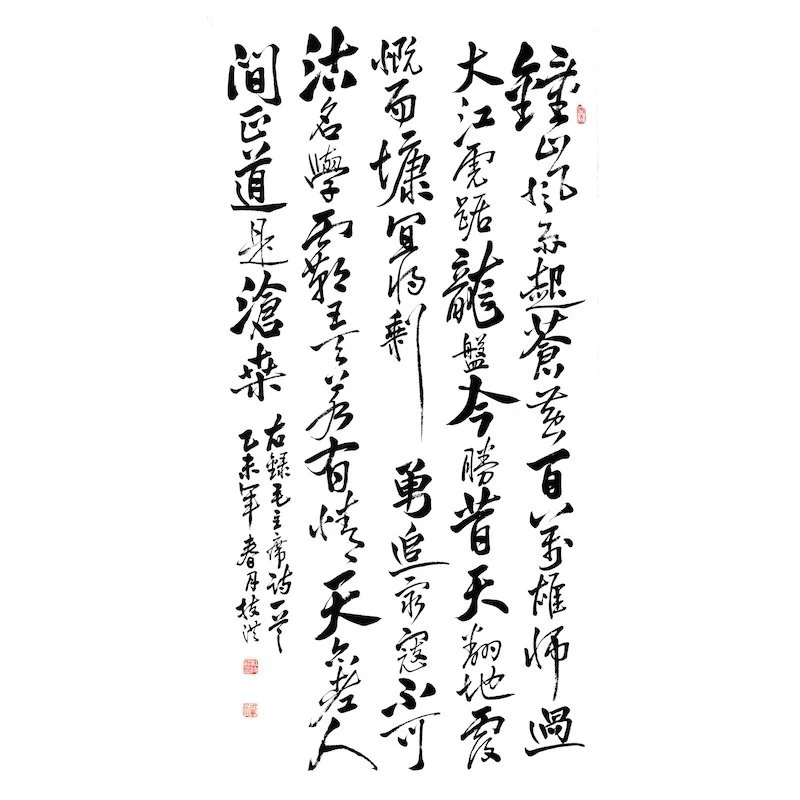 鐘山風雨起蒼黃百萬雄師過
大江虎踞龍盤今勝昔天翻地覆
慨而慷宜將剩勇追窮寇不可
沽名學霸王天若有情天亦老人
間正道是滄桑
右錄毛主席詩一首
乙未年春月